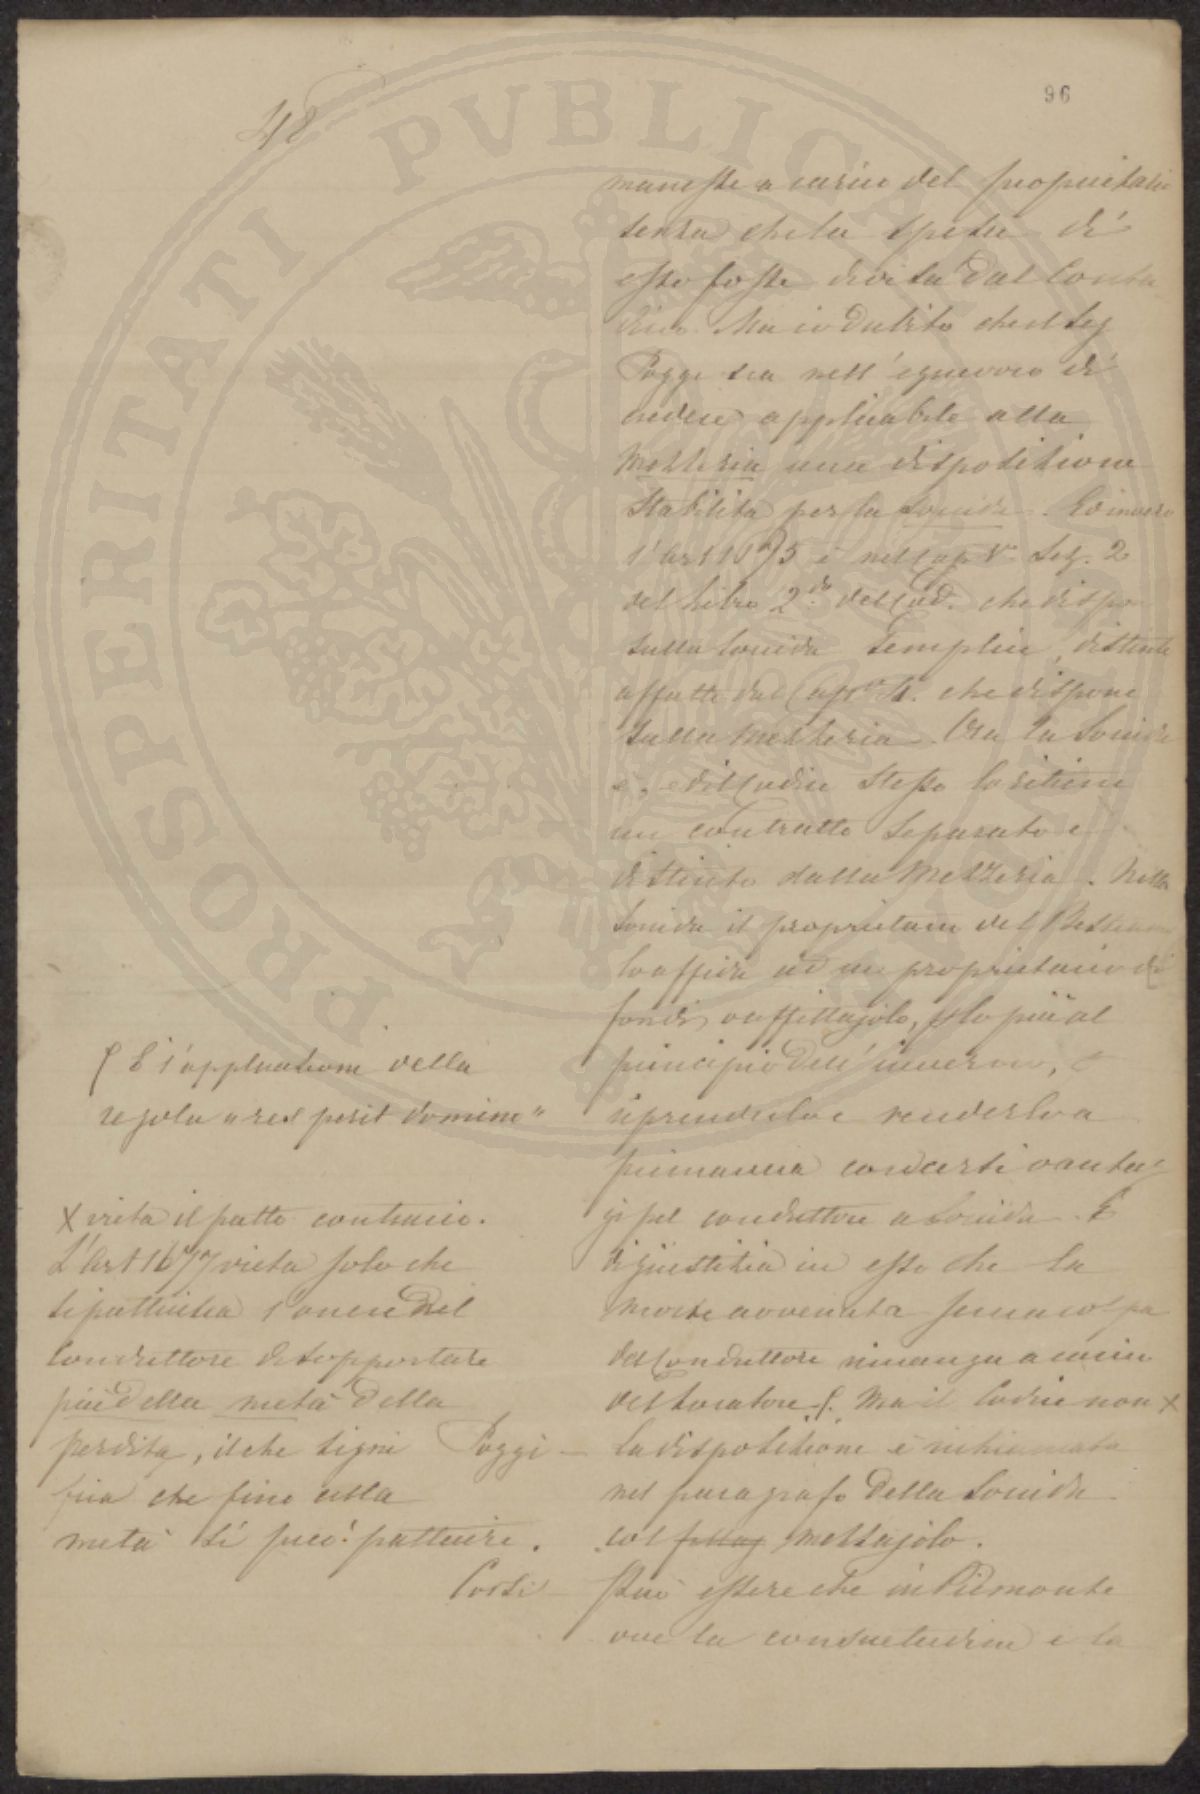 96
48
manesse a carico del proprietario
senza che la spesa di
esso fosse divisa dal Conta
dino. Ma io dubito che il Sig
Poggi sia nell'equivoco di
credere applicabile alla
Mezzeria una disposizione
stabilita per la Soccida. Ed invero
l'art 1675 è nel Cap V Sez. 2
del Libro 2do del Cod. che dispone
sulla Soccida semplice, distinto
affatto dal Cap 4. che dispone
sulla Mezzeria. Ora la Soccida
è, ed il Codice stesso lo ritiene
un contratto separato e
distinto dalla Mezzeria. Nella
Soccida il proprietario del Bestiame
lo affida ad un proprietario di
fondi o affittajolo, p lo più al
principio dell'inverno, e
riprenderlo e renderlo a
primavera con certi vantag
gi pel conduttore a Soccida. È
di giustizia in esso che la
morte avvenuta senza colpa
del Conduttore rimanga a carico
del Locatore ʃ. Ma il Codice non X
la disposizione è richiamata
nel paragrafo della Soccida
col mezzajolo.
Può essere che in Piemonte
ove la consuetudine e la
ʃ È l'applicazione della
regola "res perit domino"
X vieta il patto contrario.
L'Art 1677 vieta solo che
si pattuisca l'onere del
Conduttore di sopportare
più della metà della
perdita, il che signi Poggi
fica che fino alla
metà si può pattuire.
Corsi
PROSPERITATI PVBLICAE